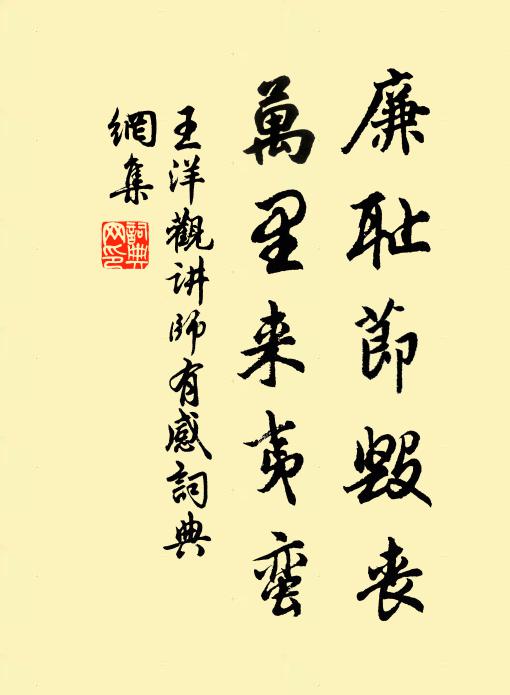 廉耻節毀丧
萬里来夷蛮
王洋觀讲師有感詞典
網集
詞典
网印